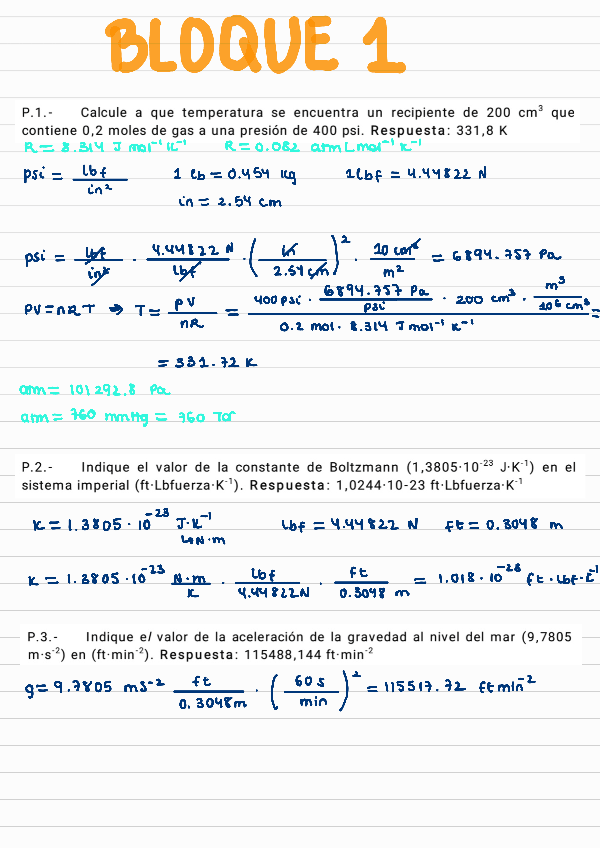 BLOQUE 1
P.1.- Calcule a que temperatura se encuentra un recipiente de 200 cm³ que
contiene 0,2 moles de gas a una presión de 400 psi. Respuesta: 331,8 K
R = 8.314 J mol⁻¹ K⁻¹ R = 0.082 atm L mol⁻¹ K⁻¹
psi = lbf / in² 1 lb = 0.454 kg 1 lbf = 4.44822 N
in = 2.54 cm
psi = lbf / in² · 4.44822 N / lbf · (in / 2.54 cm)² · 10 cm² / m² = 6894.757 Pa
PV = nRT ⇒ T = PV / nR = 400 psi · 6894.757 Pa / psi · 200 cm³ · m³ / 10⁶ cm³ / 0.2 mol · 8.314 J mol⁻¹ K⁻¹ =
= 331.72 K
atm = 101292.8 Pa
atm = 760 mmHg = 760 Tor
P.2.- Indique el valor de la constante de Boltzmann (1,3805·10⁻²³ J·K⁻¹) en el
sistema imperial (ft·Lbfuerza·K⁻¹). Respuesta: 1,0244·10-23 ft·Lbfuerza·K⁻¹
K = 1.3805 · 10⁻²³ J·K⁻¹ lbf = 4.44822 N ft = 0.3048 m
↳N·m
K = 1.3805 · 10⁻²³ N·m / K · lbf / 4.44822 N · ft / 0.3048 m = 1.018 · 10⁻²³ ft · lbf · K⁻¹
P.3.- Indique el valor de la aceleración de la gravedad al nivel del mar (9,7805
m·s⁻²) en (ft·min⁻²). Respuesta: 115488,144 ft·min⁻²
g = 9.7805 m s⁻² ft / 0.3048 m · (60 s / min)² = 115517.72 ft min⁻²